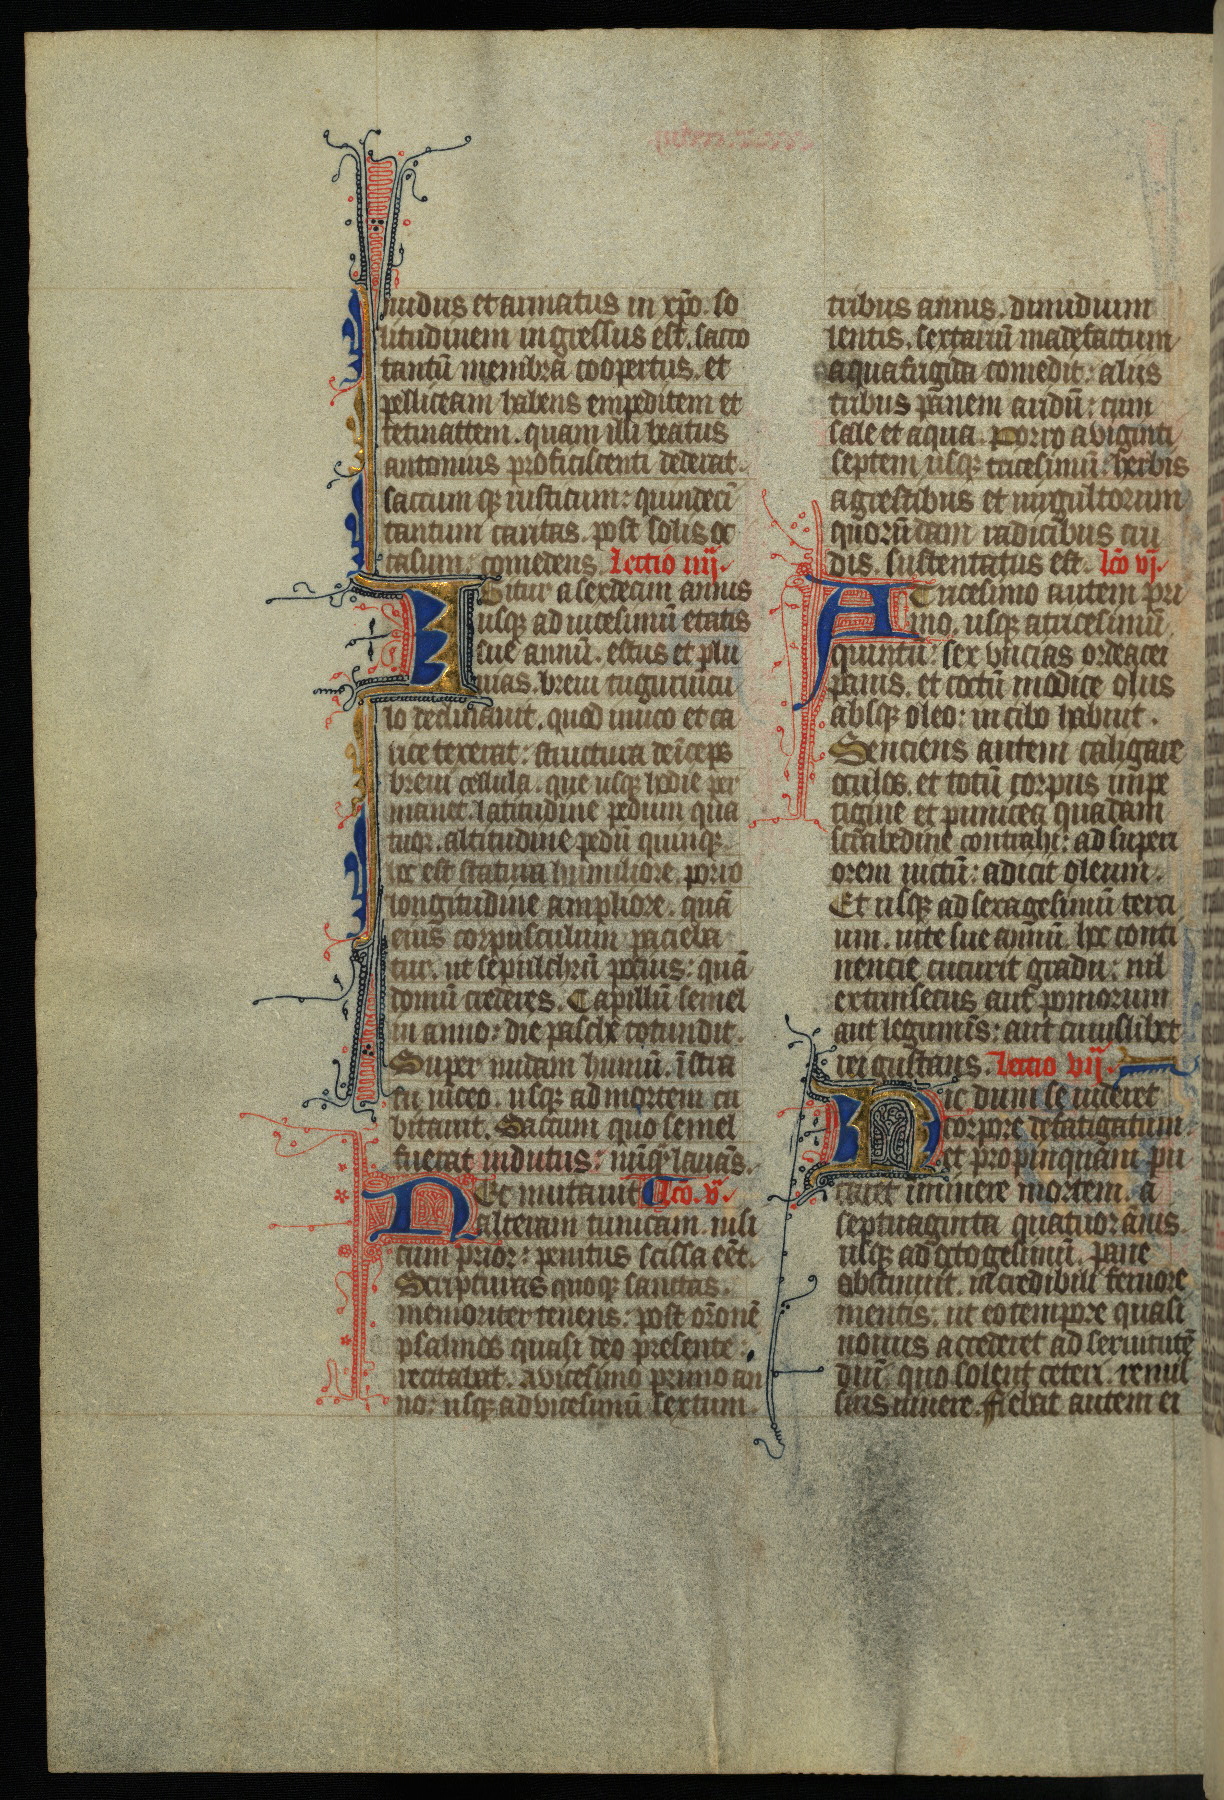 nudus et armatus in xp̄o. so
litudinem ingressus est. sacco
tantū membra coopertus. et
pelliceam habens empeditem et
retinattem. quam illi beatus
antonius proficiscenti dederat.
saccum qȝ rusticum: quindecī
tantum caricas. post solis oc
casum: comedens. Lectio iiij.
Igitur a sexdecim annis
usqȝ ad uicesimū etatis
sue annū. estus et plu
uias. breui tuguriūcu
lo declinauit. quod iunco et ca
rice texerat: structura deīceps
breui cellula. que usqȝ hodie per
manet. latitudine pedum qua
tuor. altitudine pedū quinqȝ.
hec est statura humiliore. porro
longitudine ampliore. quā
eius corpusculum pacieba
tur. ut sepulchrū pocius: quā
domū crederes. Capillū semel
in anno: die pasche totundit.
Super nudam humū. īstra
tu iuceo. usqȝ ad mortem cu
bitauit. Saccum quo semel
fuerat indutus: nūqȝ lauās.
Nec mutauit Lc̄o. v.
alteram tunicam. nisi
cum prior: penitus scissa eēt.
Scripturas quoqȝ sanctas.
memoriter tenens: post or̄onē
psalmos quasi deo presente:
recitabat. A vicesimo primo an
no: usqȝ ad vicesimū sextum.
tribus annis. dimidium
lentis. sextariū madefactum
aqua frigida comedit: aliis
tribus panem aridū: cum
sale et aqua. Porro a viginti
septem usqȝ tricesimū: herbis
agrestibus et uirgultorum
quorūdam radicibus cru
dis. sustentatus est. Lc̄o vj.
A Tricesimo autem pri
mo. usqȝ a tricesimū
quintū: sex vncias ordeacei
panis. et coctū modice olus
absqȝ oleo: in cibo habuit.
Senciens autem caligare
oculos. et totū corpus impe
tigine et punicea quadam
scābedine contrahi: ad superi
orem uictū: adicit oleum.
Et usqȝ ad sexagesimū terci
um. uite sue annū. hoc conti
nencie cucurit gradu: nil
extrinsecus aut pomorum
aut legumīs: aut cuiuslibet
rei gustans. Lectio vij.
Hic dum se uideret
corpore defatigatum.
et propinquam pu
taret iminere mortem. a
septuaginta quatuor ānis.
usqȝ ad octogesimū. pane
abstinuit. incredibili feruore
mentis: ut eo tempore quasi
nouus accederet ad seruitutē
dnī. quo solent ceteri. remis
sius uiuere. Fiebat autem ei